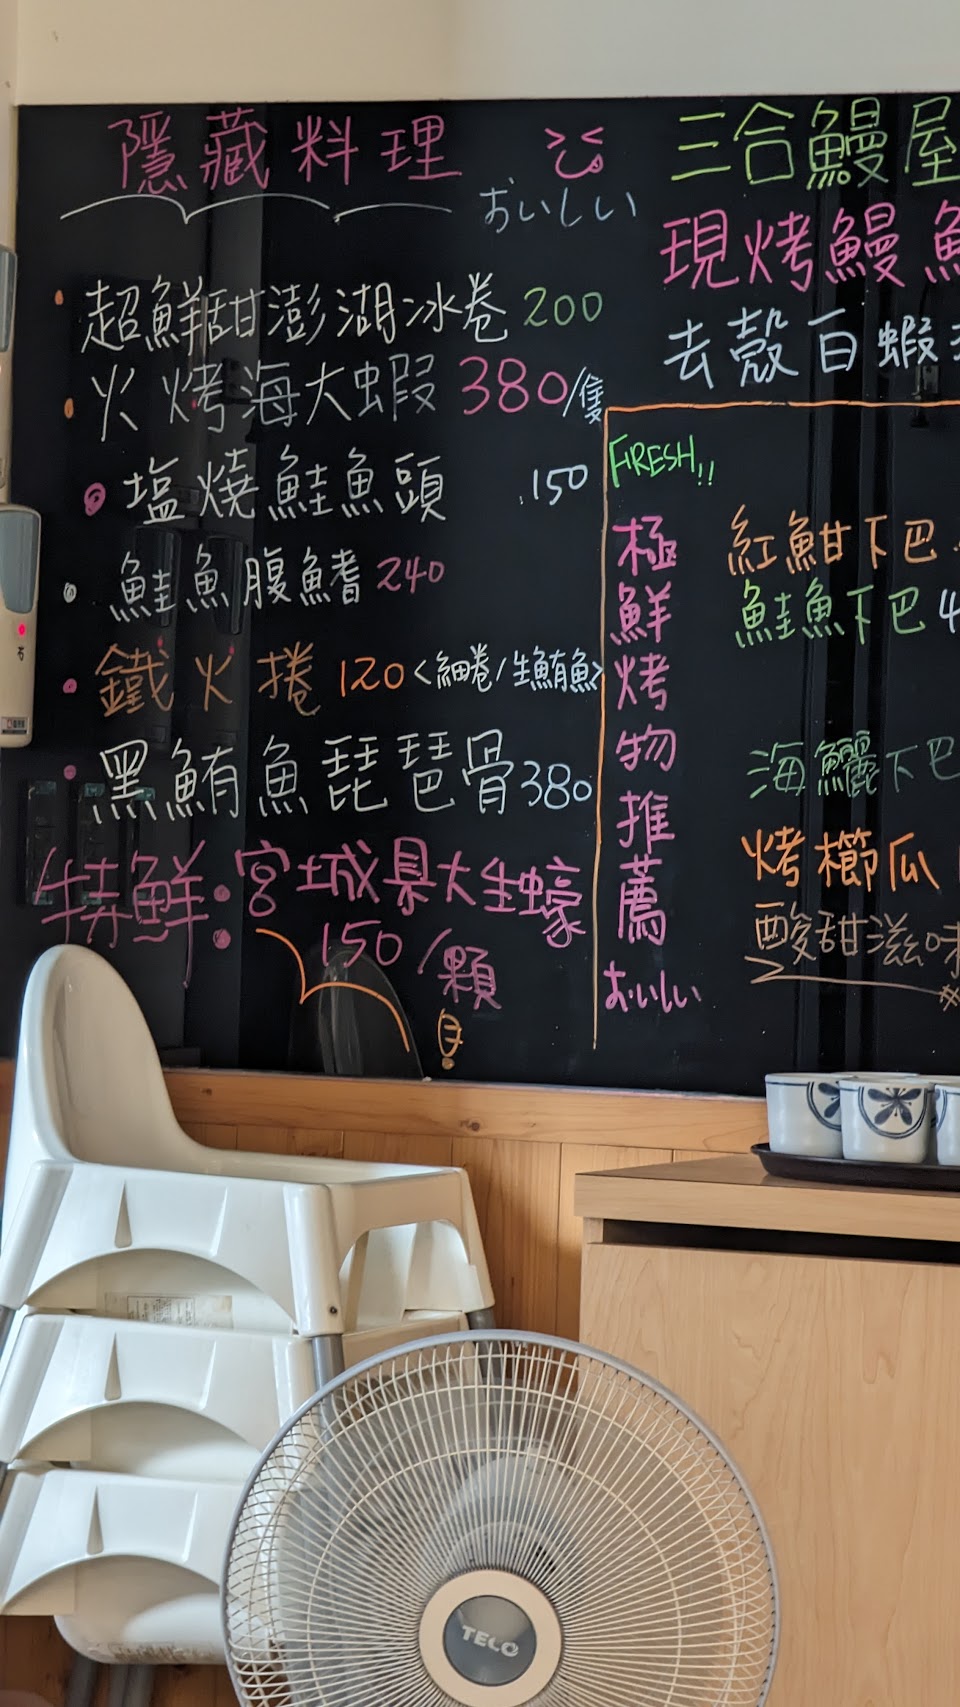 隱藏料理
おいしい
超鮮甜澎湖冰卷 200
火烤海大蝦 380/隻
塩燒鮭魚頭 150
鮭魚腹鰭 240
鐵火捲 120 <細卷/生鮪魚>
黑鮪魚琵琶骨 380
特鮮:宮城県大生蠔
150/顆
三合鰻屋
現烤鰻
去殼白蝦
FRESH!!
極鮮烤物推薦
おいしい
紅魽下巴
鮭魚下巴 4
海鱺下巴
烤櫛瓜
酸甜滋味
TECO